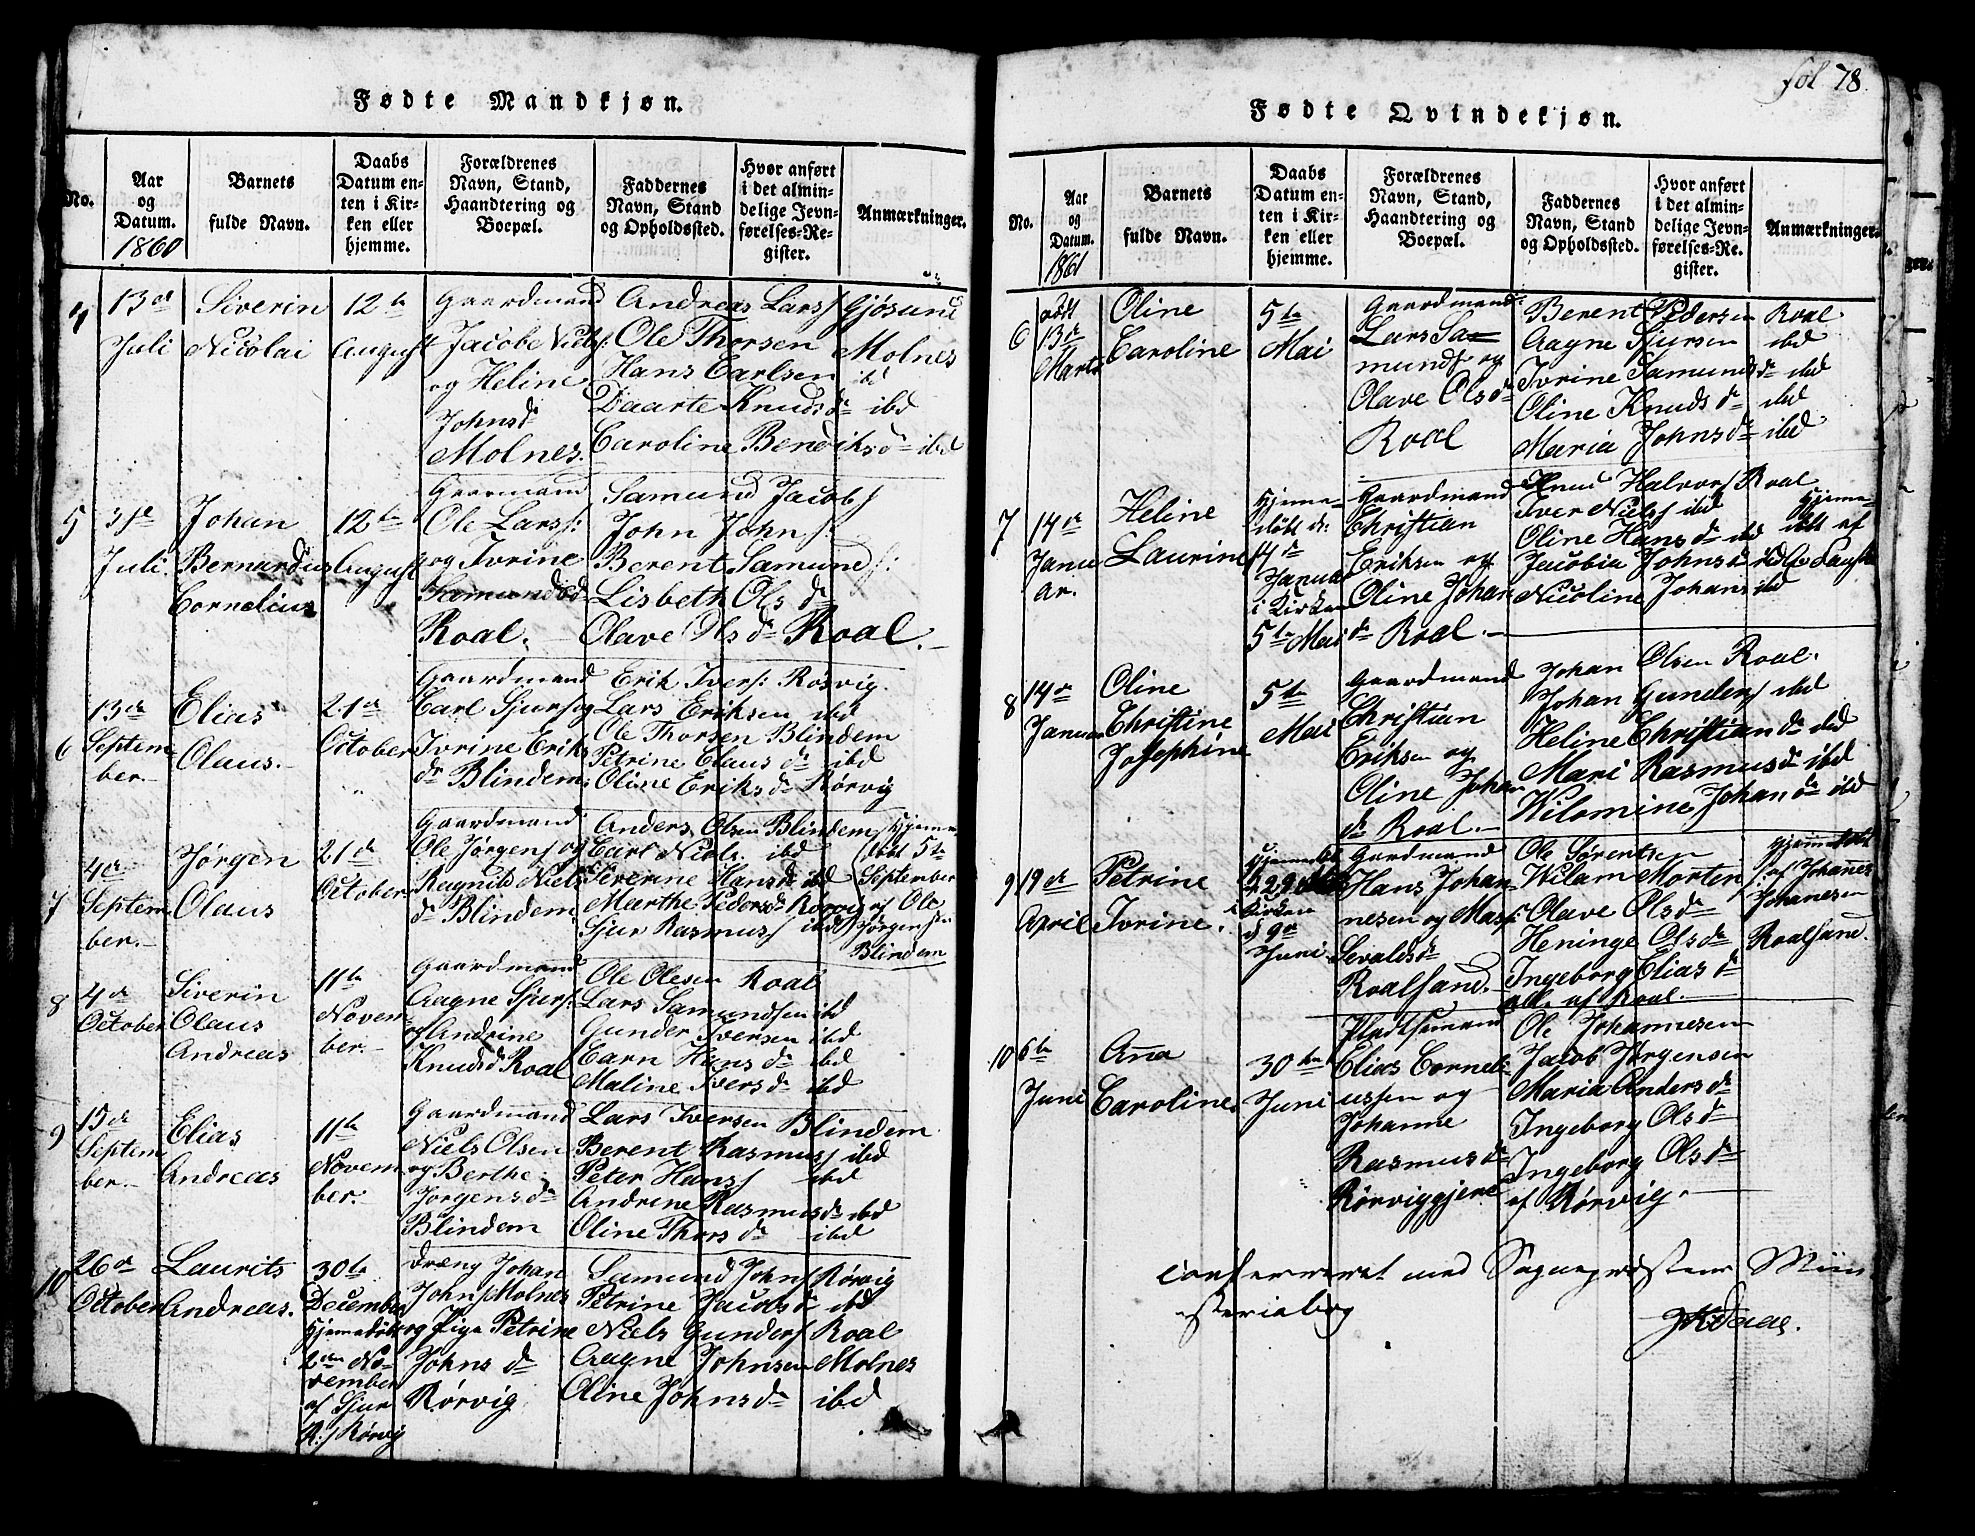 Fødte Mandkjøn.
No.
Aar
og
Datum.
1860
Barnets
fulde Navn.
Daabs
Datum en-
ten i Kir-
ken eller
hjemme.
Forældrenes
Navn, Stand,
Haandtering og
Boepæl.
Faddernes
Navn, Stand
og Opholdssted.
Hvor anført
i det almin-
delige Jevn-
førelses-Re-
gister.
Anmærkninger.
4
13de
Juli
Siverin
Nicolai
12te
August
Gaardmand
Jacobe Niels:
og Heline
Johnsd
Molnes.
Andreas Larss Gjøsund
Ole Thorsen Molnes
Hans Carlsen ibd
Daarte Knudsdr ibd
Caroline Bendiksdr ibd
5
31te
Juli
Johan
Bernardus
Cornelius
12te
August
Gaarmand
Ole Larss:
og Ivrine
Samundsd
Roal.
Samund Jacobs
John Johns:
Berent Samunds:
Lisbeth Olsdr
Olave Olsdr Roal.
6
13de
Septem
ber.
Elias
Olaus.
21de
October
Gaardmand
Carl Sjurs og
Ivrine Eriks
dr Blindem
Erik Ivers: Rosvig.
Lars Eriksen ibd
Ole Thorsen Blindem
Petrine Claus dr ibd
Oline Eriks dr Rørvig
7
4de
Septem
ber.
Jørgen
Olaus
21de
October
Gaardmand
Ole Jørgens og
Ragnild Niels
dr Blindem
Anders Olsen Blindem
Carl Niels. ibd
Siverine Hansdr ibd
Marthe Pedersdr Rørvig
Sjur Rasmuss ibd
Hjemme
døbt 5te
September
af Ole
Jørgensen
Blindem
8
4de
October
Siverin
Olaus
Andreas
11te
Novem
ber.
Gaardmand
Aagne Sjurs:
og Andrine
Knudsd Roal
Ole Olesen Roal
Lars Samundsen ibd
Gunder Iversen ibd
Carn Hans dr ibd
Maline Ivers dr ibd
9
15de
Septem
ber.
Elias
Andreas
11te
Novem
ber.
Gaardmand
Niels Olsen
og Berthe
Jørgensdr
Blindem
Lars Iversen Blindem
Berent Rasmuss ibd
Peter Hanss ibd
Andrine Rasmusdr ibd
Oline Thors dr ibd
10
26de
October
Laurits
Andreas.
30te
December
Hjemedøbt
2den No-
vember
af Sjur
R:s Rørvig
Dræng Johan
Johns Molnes
og Pige Petrine
Johns dr
Rørvig
Samund Johns Rørvig
Petrine Jacobsdr ibd
Niels Gunders Roal
Aagne Johnsen Molnes
Oline Johnsdr ibd
fol 78.
Fødte Qvindekjøn.
No.
Aar
og
Datum.
1861
Barnets
fulde Navn.
Daabs
Datum en-
ten i Kir-
ken eller
hjemme.
Forældrenes
Navn, Stand,
Haandtering og
Boepæl.
Faddernes
Navn, Stand
og Opholdssted.
Hvor anført
i det almin-
delige Jevn-
førelses-Re-
gister.
Anmærkninger.
6
13de
Marts
Oline
Caroline
5te
Mai
Gaardmand
Lars Sa
munds og
Olave Olsdr
Roal
Berent Pedersen Roal
Aagne Sjursen ibd
Ivrine Samunds dr ibd
Oline Knuds dr ibd
Maria Johns dr ibd
7
14de
Janu
ar.
Heline
Laurine
Hjemme
døbt d:
Januar
i Kirken
5te Mai
Gaardmand
Christian
Eriksen og
Oline Johan
dr Roal.
Knud Halvors Roal
Iver Niels ibd
Oline Hansdr ibd
Jacobia Johnsdr ibd
Nicoline Johans ibd
Hjeme
døbt af
8
14de
Januar
Oline
Christine
Josephine
5te
Mai
Gaardmand
Christian
Eriksen og
Oline Johan
dr Roal.
Johan Olsen Roal.
Johan Gunders ibd
Heline Christiandr ibd
Mari Rasmusdr ibd
Wilomine Johandr ibd
9
19de
April
Petrine
Ivrine.
i Kirken
d 9de
Juni
Gardmand
Hans Johan-
nesen og Mass:
Sevaldsdr
Roalsand.
Ole Sørentsen
Wilam Morten
Olave Olsdr
Heninge Olsdr
Ingeborg Eliasdr
alle af Roal.
Hjemedøbt
af Johannes
Johanesen
Roalsand.
10
6te
Juni
Ana
Caroline.
30te
Juni
Pladtsemand
Elias Corneli-
ussen og
Johanne
Rasmusdr
Rørviggjere
Ole Johannesen
Jacob Jørgensen
Maria Andersdr
Ingeborg Olsdr
Ingeborg Olsdr
af Rørvig.
confereret med Sognepræstens Min
isterialbog